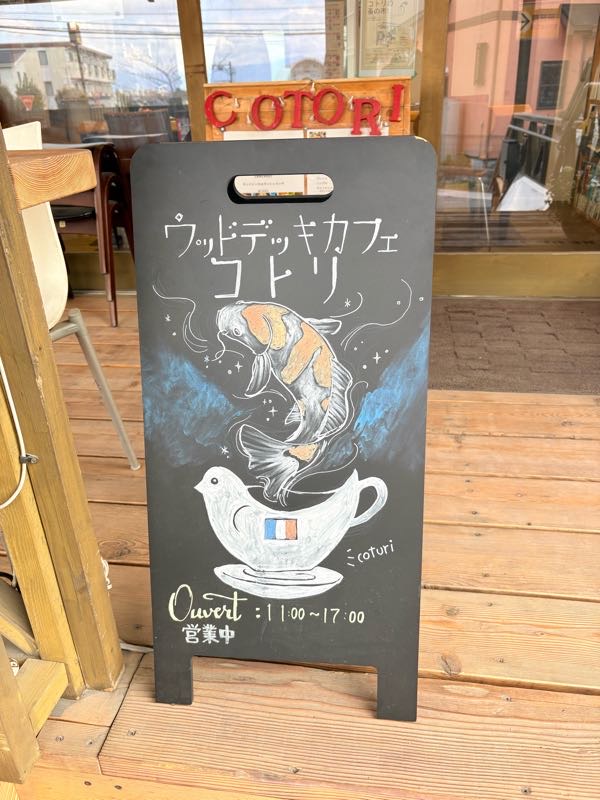 COTORI
ウッドデッキカフェ
コトリ
coturi
Ouvert : 11:00~17:00
営業中